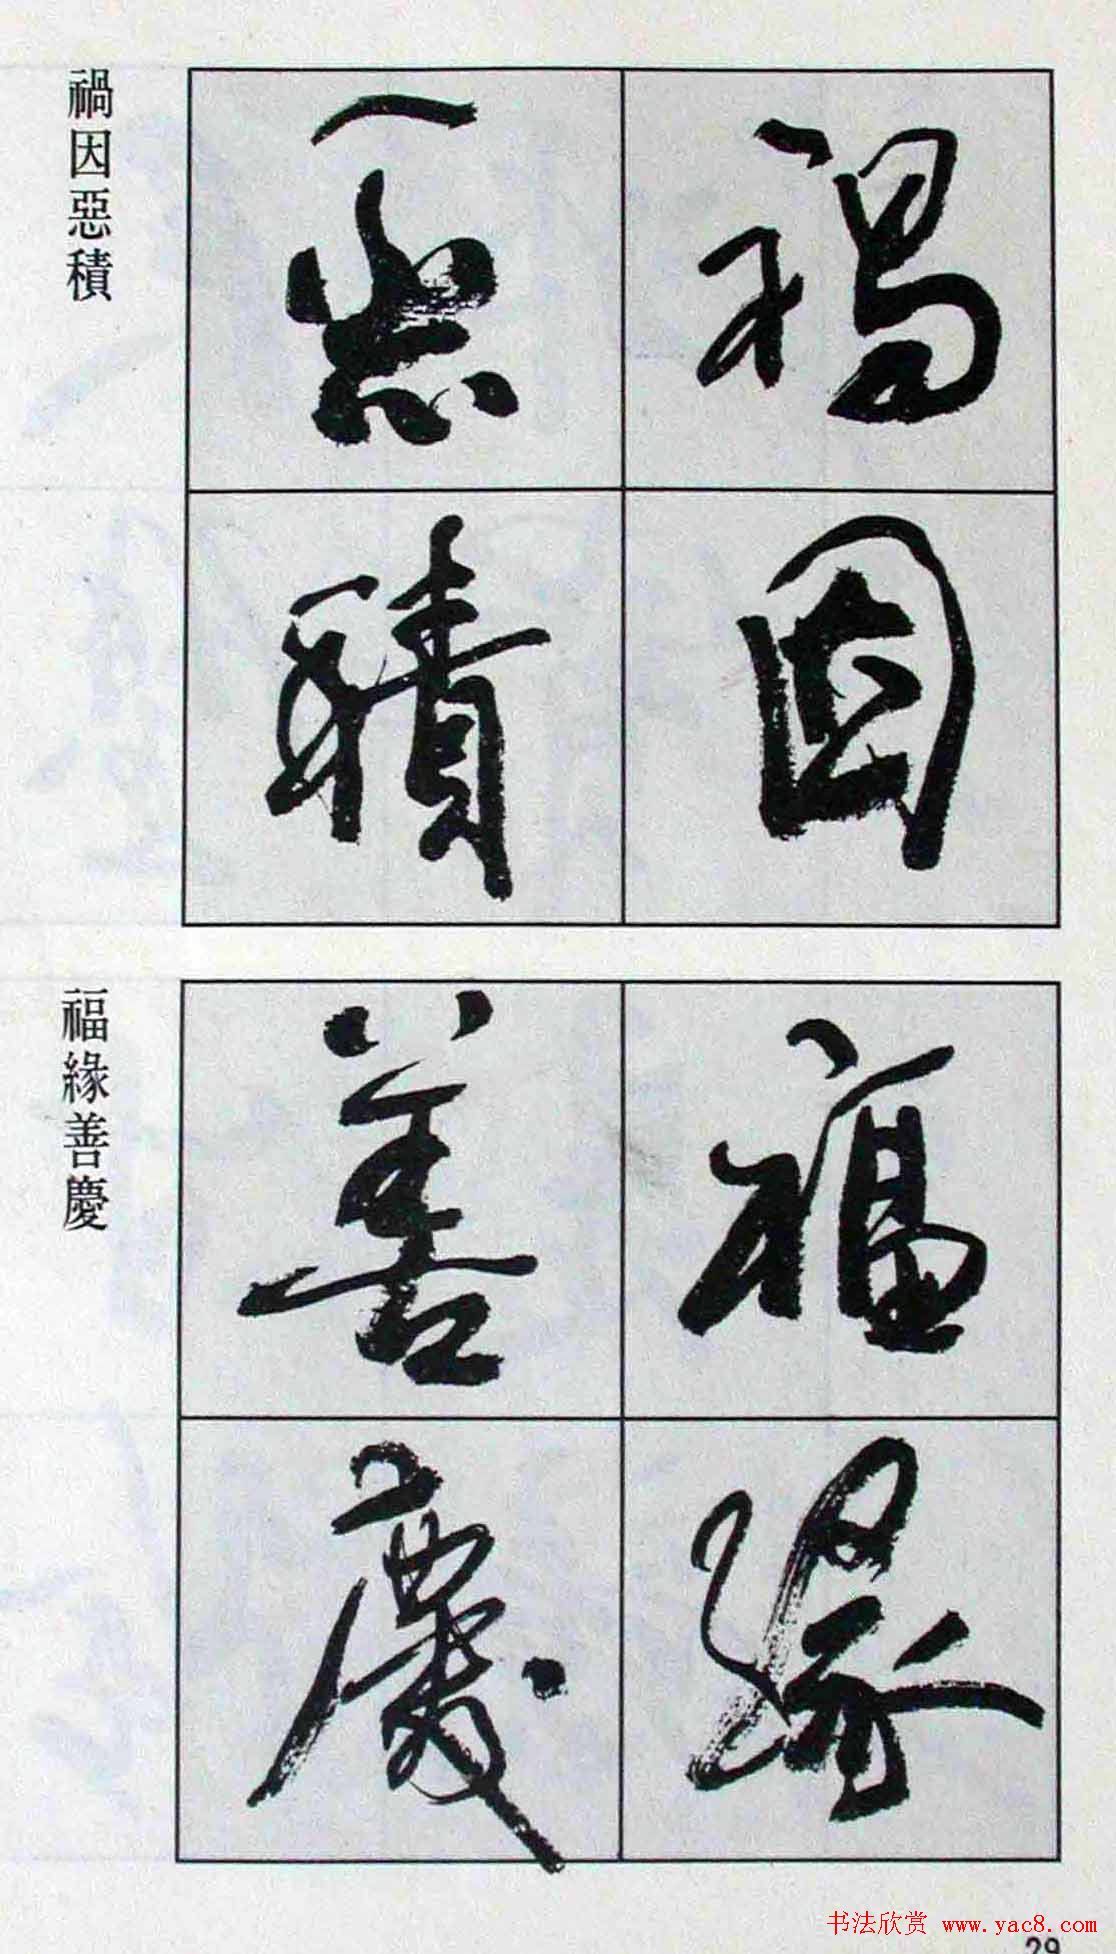 禍因
惡積
禍因惡積
福緣
善慶
福緣善慶
书法欣赏 www.yac8.com
29